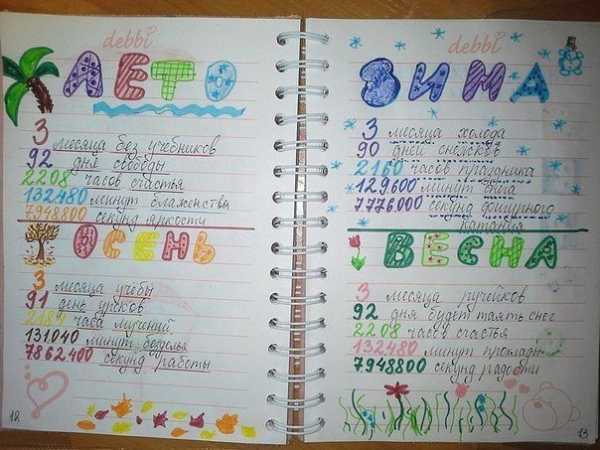 debbi
ЛЕТО
3 месяца без учебников
92 дня свободы
2208 часов счастья
132480 минут блаженства
7948800 секунд яркости
ОСЕНЬ
3 месяца учёбы
91 день уроков
2184 часа мучений
131040 минут безделья
7862400 секунд работы
12
debbi
ЗИМА
3 месяца холода
90 дней снежков
2160 часов праздника
129600 минут снега
7776000 секунд фигурного
катания
ВЕСНА
3 месяца ручейков
92 дня будет таять снег
2208 часов счастья
132480 минут прохлады
7948800 секунд радости
13